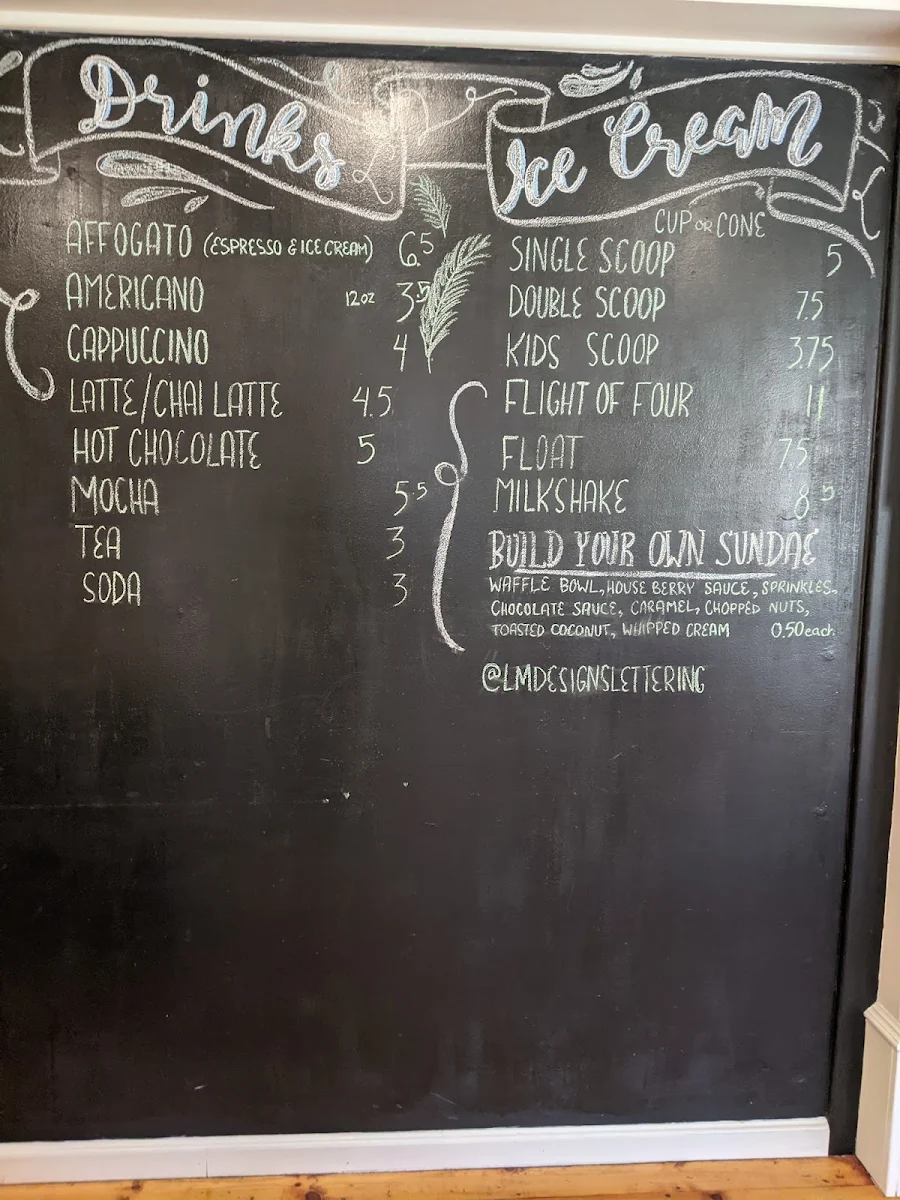 Drinks
AFFOGATO (ESPRESSO & ICE CREAM) 6.5
AMERICANO 12oz 3.5
CAPPUCCINO 4
LATTE/CHAI LATTE 4.5
HOT CHOCOLATE 5
MOCHA 5.5
TEA 3
SODA 3
Ice Cream
CUP OR CONE
SINGLE SCOOP 5
DOUBLE SCOOP 7.5
KIDS SCOOP 3.75
FLIGHT OF FOUR 11
FLOAT 7.5
MILKSHAKE 8.5
BUILD YOUR OWN SUNDAE
WAFFLE BOWL, HOUSE BERRY SAUCE, SPRINKLES,
CHOCOLATE SAUCE, CARAMEL, CHOPPED NUTS,
TOASTED COCONUT, WHIPPED CREAM 0.50 each
@LMDESIGNSLETTERING